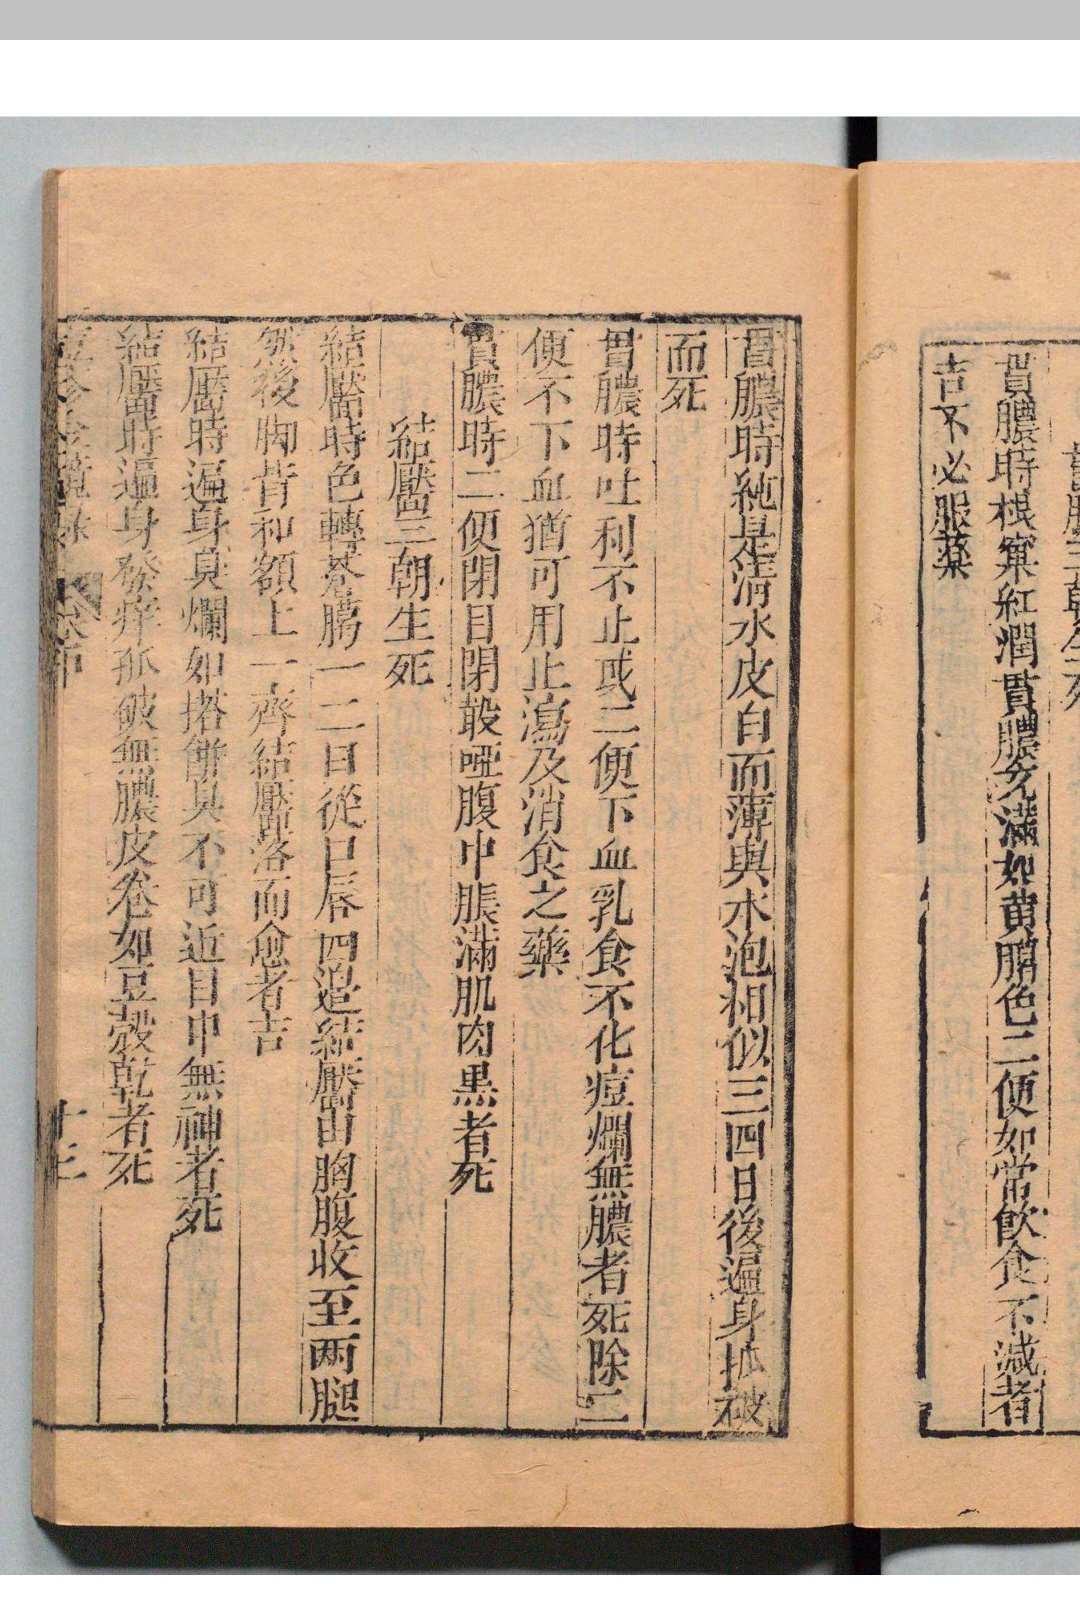 貫膿三朝生死
貫膿時根窠紅潤貫膿充滿如黄蠟色二便如常飲食不減者
吉不必服藥
貫膿時純是清水皮白而薄與水泡相似三四日後遍身抓破
而死
貫膿時吐利不止或二便下血乳食不化痘爛無膿者死除二
便不下血猶可用止瀉及消食之藥
貫膿時二便閉目閉聲啞腹中脹滿肌肉黒者死
結靨三朝生死
結靨時色轉蒼臈一二日從口唇四邉結靨由胸腹收至两腿
然後脚背和額上一齊結靨落而愈者吉
結靨時遍身臭爛如搭餅臭不可近目中無神者死
結靨時遍身發痒抓破無膿皮卷如豆殼乾者死